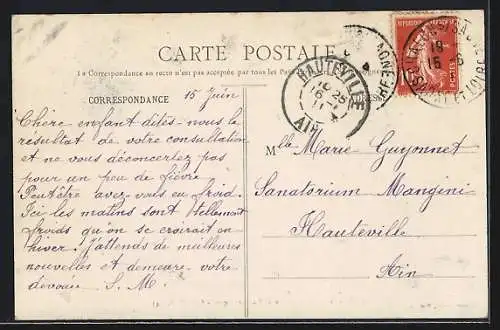 CARTE POSTALE
La Correspondance au recto n'est pas acceptée par tous les Pays
CORRESPONDANCE
15 Juin
Chère enfant dites-nous le
résultat de votre consultation
et ne vous déconcertez pas
pour un peu de fièvre
Peutêtre avez-vous eu froid.
Ici les matins sont tellement
froids qu'on se croirait en
hiver. J'attends de meilleures
nouvelles et demeure votre
dévouée S. M.
HAUTEVILLE
16 -25
AIN
POSTES
Mlle Marie Guyonnet
Sanatorium Mangini
Hauteville
Ain